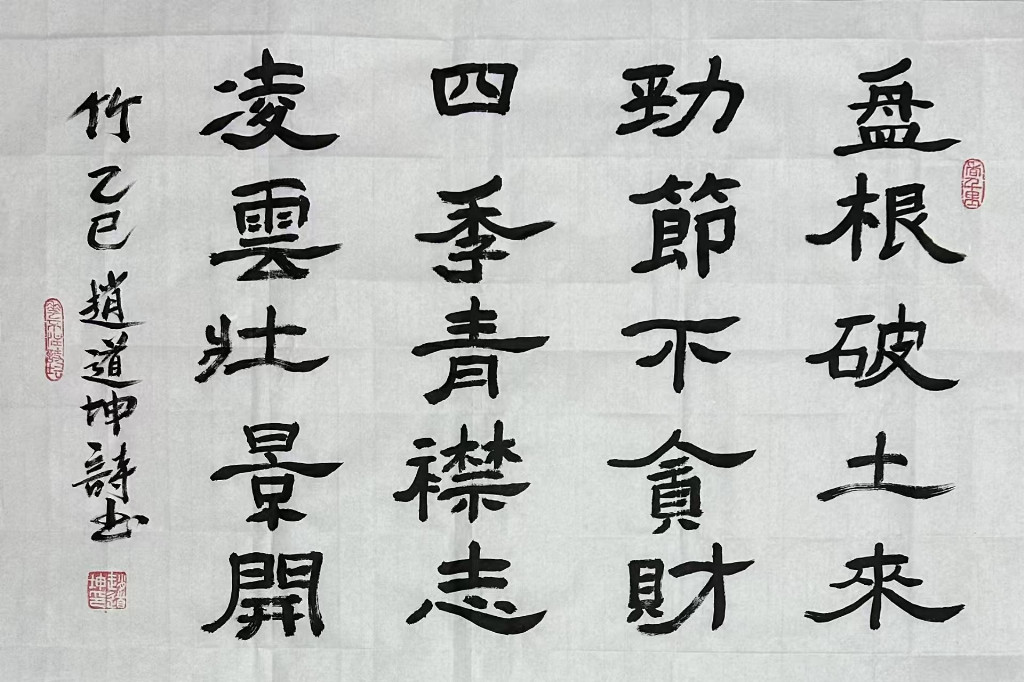 盘根破土來
勁節不貪財
四季青襟志
凌雲壯景開
竹 乙巳 趙道坤詩书
趙道坤印